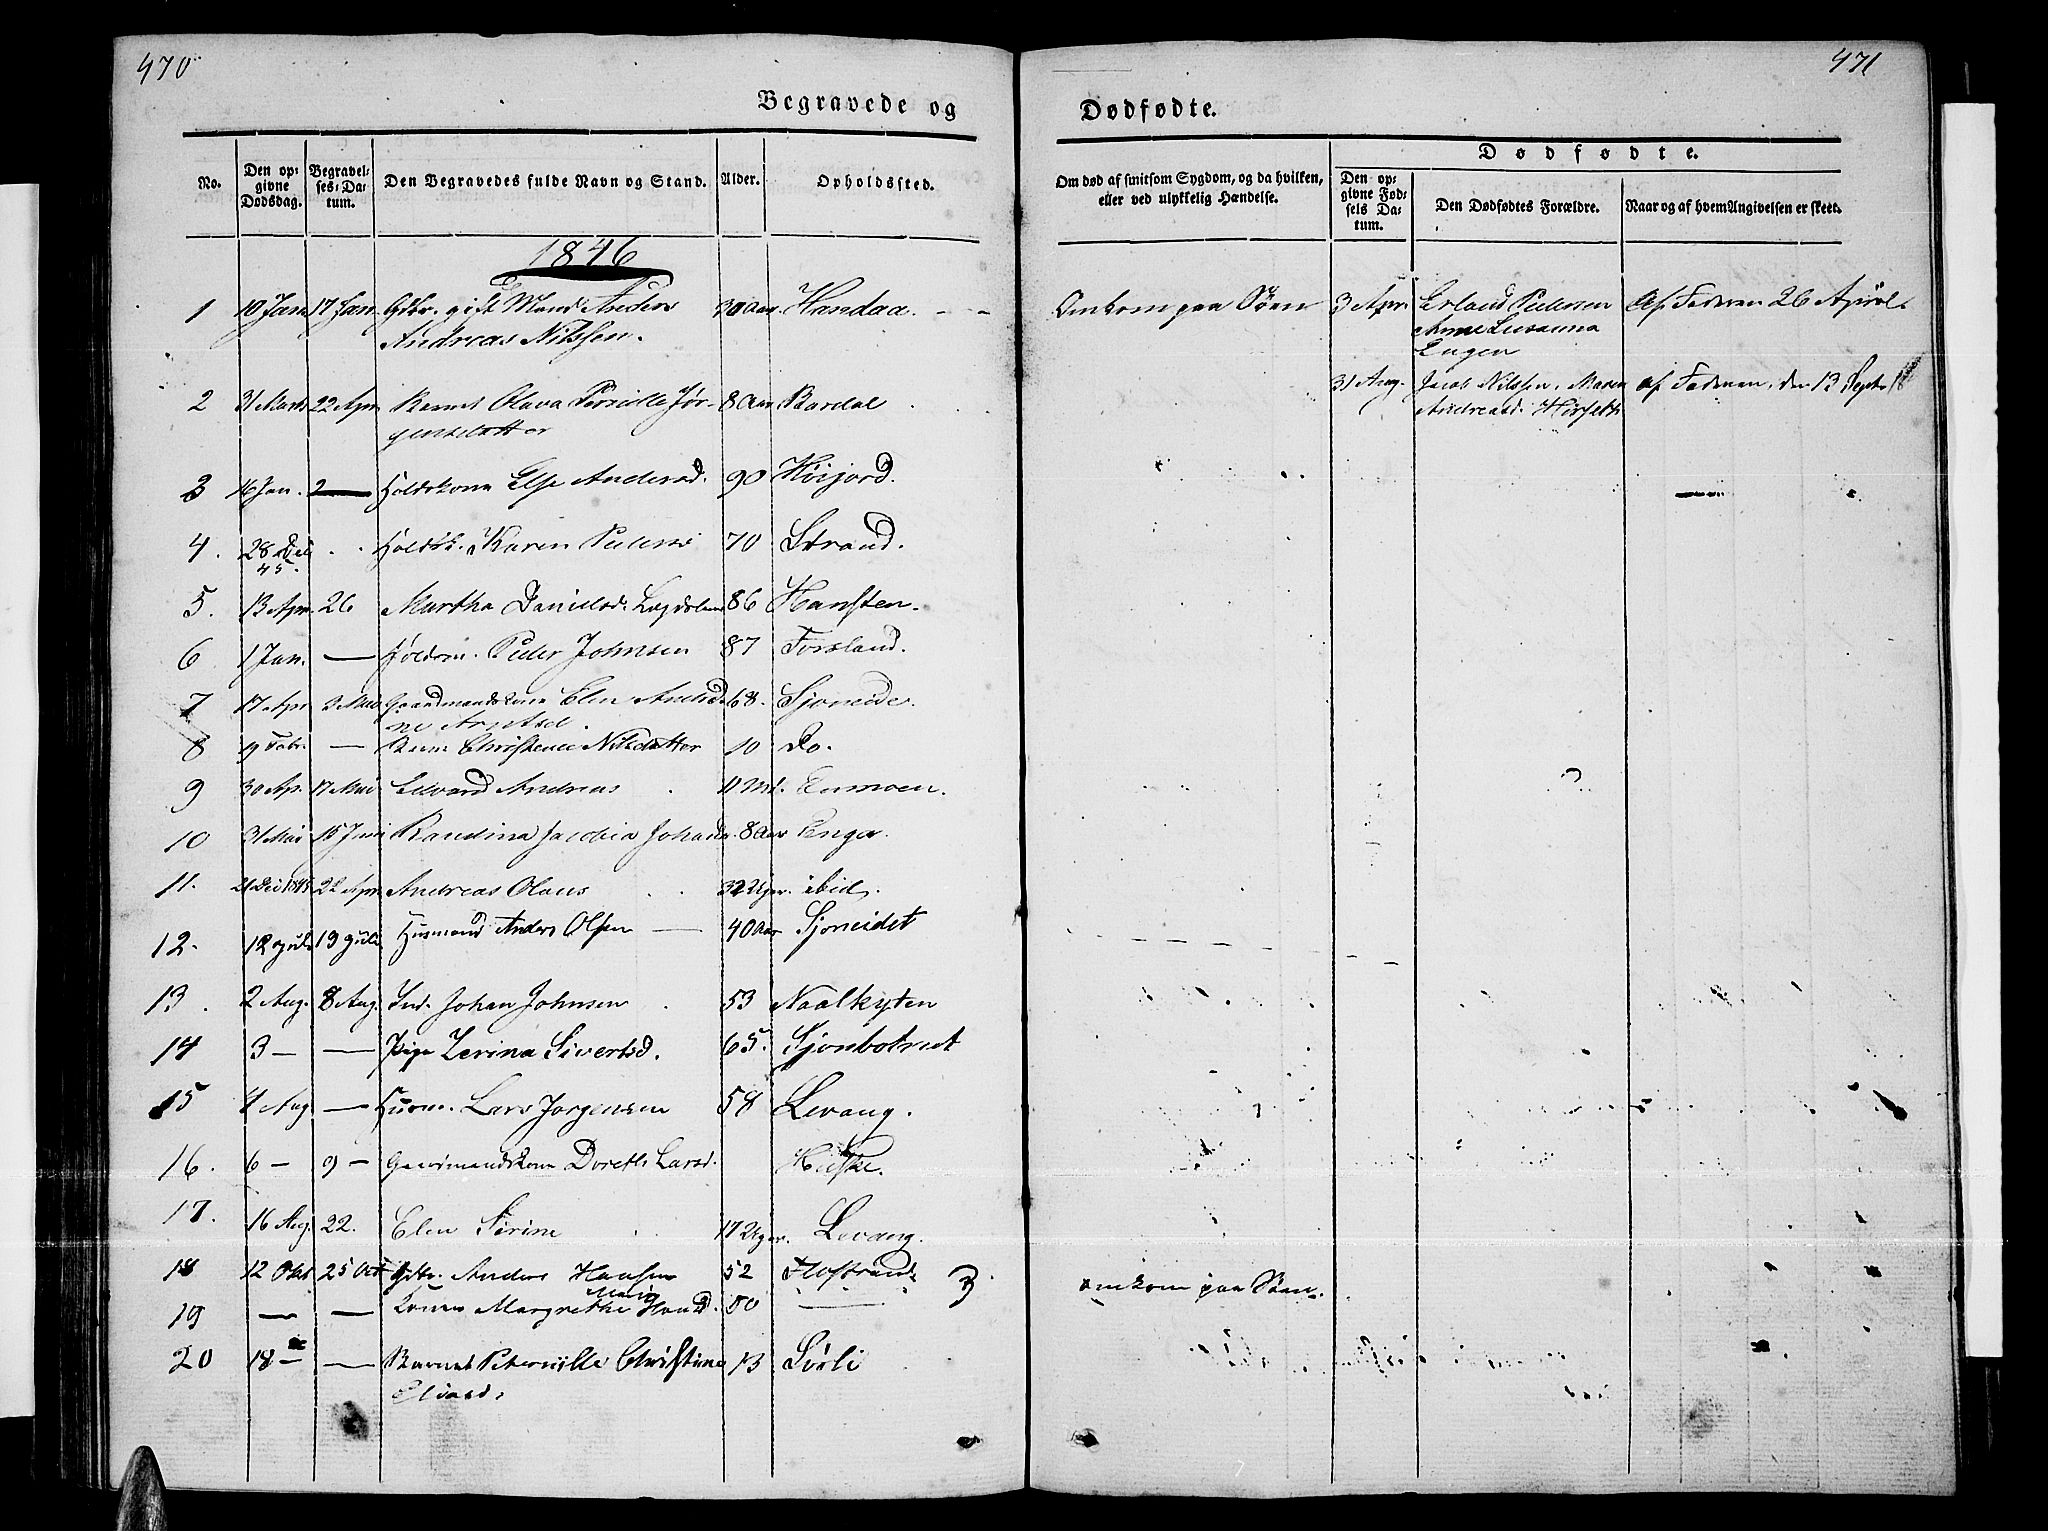 470
471
Begravede og
Dødfødte.
No.
Den op-
givne
Dødsdag.
Begravel-
ses-Da-
tum.
Den Begravedes fulde Navn og Stand.
Alder.
Opholdssted.
Om død af smitsom Sygdom, og da hvilken,
eller ved ulykkelig Hændelse.
Dødfødte.
Den op-
givne Fød-
sels Da-
tum.
Den Dødfødtes Forældre.
Naar og af hvem Angivelsen er skeet.
1846
1 10 Jan 17 Jan gift Mand Anders 30 Aar Handaa. Omkom paa Søen 3 Apr. Erland Pedersen af Faderen 26 April
Andreas Nilssen. Anne Susanna
Engen
31 Aug. Jacob Nilssen, Maren af Faderen, den 13 Sept.
2 31 Marts 22 Apr Barnet Olava Pernille Jør- 8 Aar Bardal Andreasd.
gensdatter
3 16 Jan. 2 Elsе Andersd. 90 Høijord.
4. 28 Dec Karen Peders 70 Strand.
45.
5. 13 Apr. 26 Martha Danielsd. 86 Hansten.
6 1 Jan. — Peder Johnsen 87 Forsland.
7 17 Apr 3 Mai Gaardmandskone Elen 68. Sjoneide.
8 9 Febr. — Barn Christence Nilsdatter 10 Do.
9 30 Ap. 17 Mai Edvard Andreas 11 Md. Enmoen.
10 31 Mai 15 Juni Randina Jacobia 8 Aar Enga.
11. 21 Dec 1845 22 Apr Andreas Olaus 32 Uger. ibid.
12. 12 Juli 19 Juli Husmand Anders Olsen — 40 Aar Sjoneidet
13. 2 Aug. 8 Aug. Ind. Johan Johnsen 53 Naalkyten
14 3 — — Pige Zerina Sivertsd. 65. Sjonbotnet
15 4 Aug — Husm. Lars Jorgensen 58 Levang.
16. 6 — 9 — Gaardmandskone Doreth Larsd.
17. 16 Aug. 22. Elen Sirine 17 Uger. Levang.
18 12 Okt 25 Okt Gbr. Anders Hansen 52 Flostrand omkom paa Søen.
19 — — Konen Margrethe Marie Hansd. 50 —
20 18 — — Barnet Peternille Christine 13 Sørli